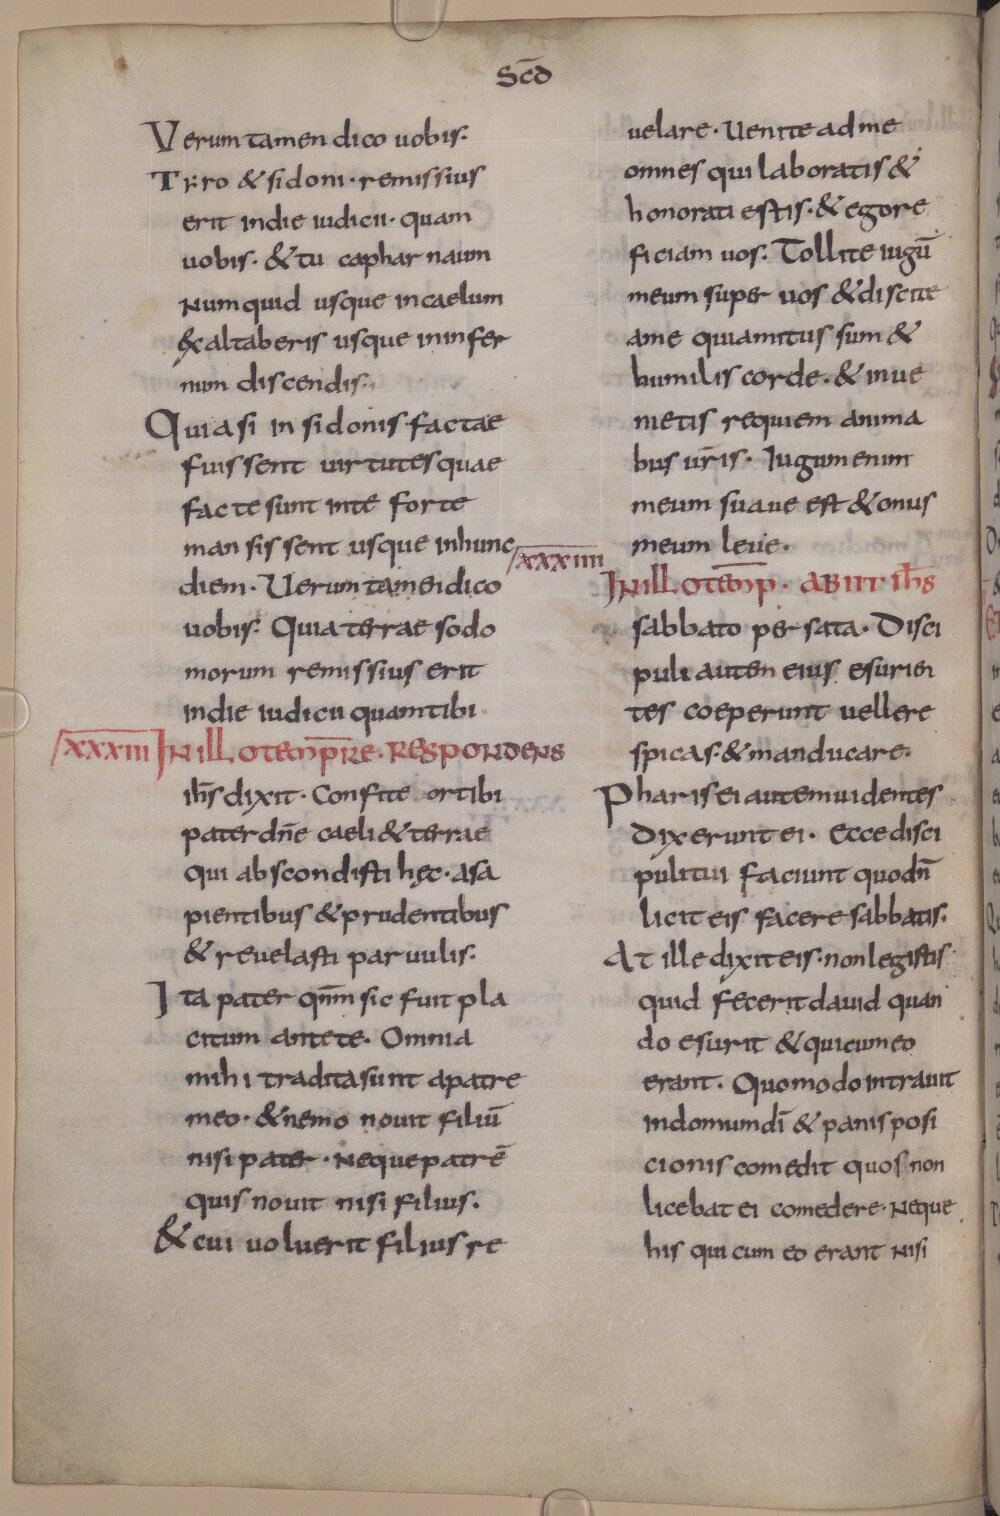 Scd̄
Verumtamen dico uobis.
Tẏro & sidoni · remissius
erit indie iudicii · quam
uobis · & tu caphar naum
Numquid usque incaelum
exaltaberis usque ininfer
num discendis.
Quia si in sidonis factae
fuissent uirtutes quae
facte sunt inte forte
mansissent usque inhunc
diem · Uerumtamen dico
uobis. Quia terrae sodo
morum remissius erit
indie iudicii quamtibi
XXXIII INILLOTEMP̄RE · RESPONDENS
ih̄s dixit · Confite ortibi
pater dn̄e caeli & terrae
qui abscondisti hęc · asa
pientibus & prudentibus
& reuelasti paruulis.
Ita pater qn̄m sic fuit pla
citum antete · Omnia
mihi tradita sunt apatre
meo · & nemo nouit filiū
nisi pater · Neque patrē
quis nouit nisi filius.
& cui uoluerit filius re
uelare · Uenite ad me
omnes qui laboratis &
honorati estis · & egore
ficiam uos. Tollite iugū
meum super uos & discite
ame quiamitus sum &
humilis corde · & inue
nietis requiem anima
bus ur̄is · Iugum enim
meum suaue est & onus
meum leue.
XXXIIII INILLOTEM̄P · ABIIT ih̄s
sabbato per sata · Disci
puli autem eius esurien
tes coeperunt uellere
spicas · & manducare.
Pharisei autem uidentes
Dixerunt ei · Ecce disci
puli tui faciunt quodn̄
licit eis facere sabbatis.
At ille dixit eis · non legistis
quid fecerit dauid quan
do esurit & qui cum eo
erant. Quomodo intrauit
indomum dī & panis posi
cionis comedit quos non
licebat ei comedere · Neque
his qui cum eo erant Nisi